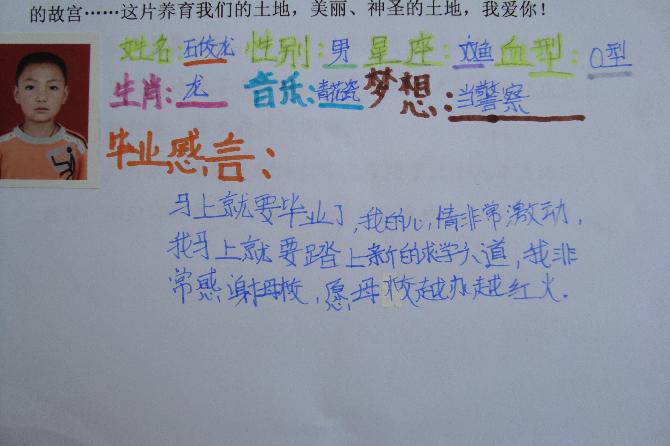 的故宫……这片养育我们的土地，美丽、神圣的土地，我爱你！
姓名:石佼龙 性别:男 星座:双鱼 血型:O型
生肖:龙 音乐:青花瓷 梦想:当警察
毕业感言:
马上就要毕业了,我的心情非常激动,
我马上就要踏上新的求学大道,我非
常感谢母校,愿母校越办越红火.